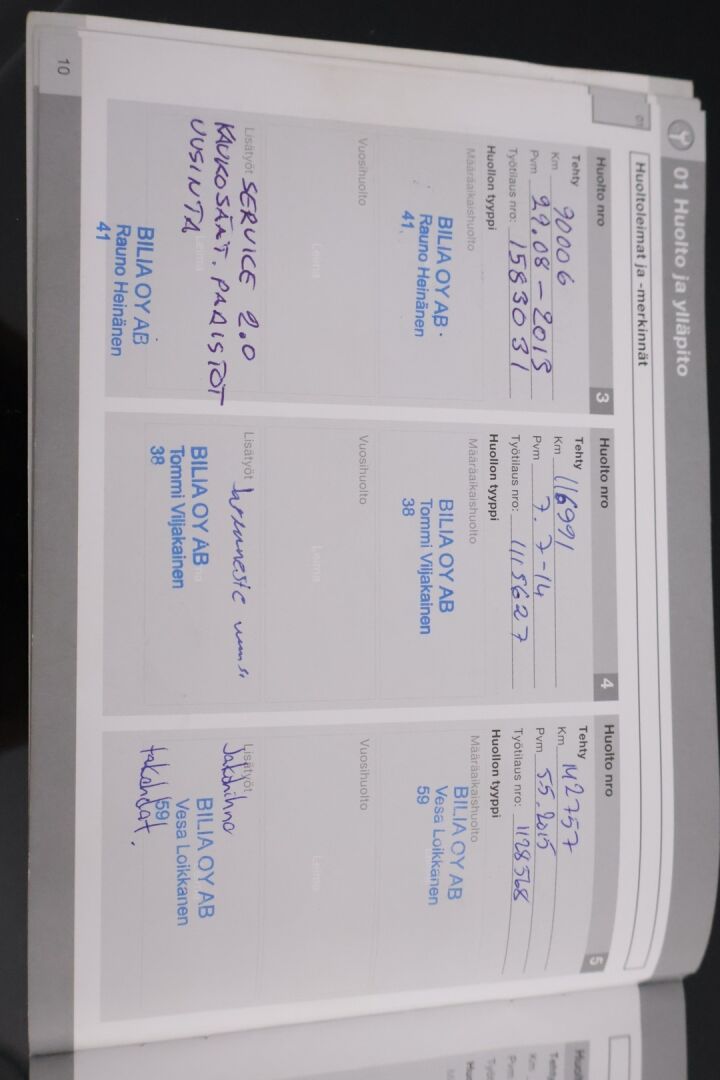 01 Huolto ja ylläpito
Huoltoleimat ja -merkinnät
01
Huolto nro 3
Tehty
Km 90006
Pvm 29.08-2013
Työtilaus nro: 1583031
Huollon tyyppi
Määräaikaishuolto
BILIA OY AB
Rauno Heinänen
41
Vuosihuolto
Leima
Lisätyöt SERVICE 2.0
KAUKOSÄÄT. PARISTOT
UUSINTA
BILIA OY AB
Rauno Heinänen
41
Huolto nro 4
Tehty
Km 116991
Pvm 7.7-14
Työtilaus nro: 1115627
Huollon tyyppi
Määräaikaishuolto
BILIA OY AB
Tommi Viljakainen
38
Vuosihuolto
Leima
Lisätyöt Jarruneste
BILIA OY AB
Tommi Viljakainen
38
Huolto nro 5
Tehty
Km 142757
Pvm 5.5.2015
Työtilaus nro: 1128568
Huollon tyyppi
Määräaikaishuolto
BILIA OY AB
Vesa Loikkanen
59
Vuosihuolto
Leima
Lisätyöt
Jakohihna
BILIA OY AB
Vesa Loikkanen
59
10